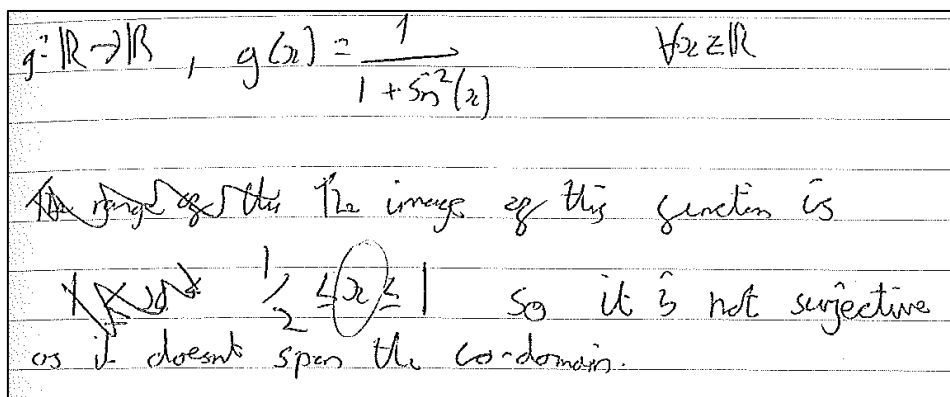 g: ℝ → ℝ , g(x) = 1 / (1 + sin²(x)) ∀x ∈ ℝ
The range of this The image of this function is
1/2 ≤ x ≤ 1 so it is not surjective
as it doesnt span the co-domain.